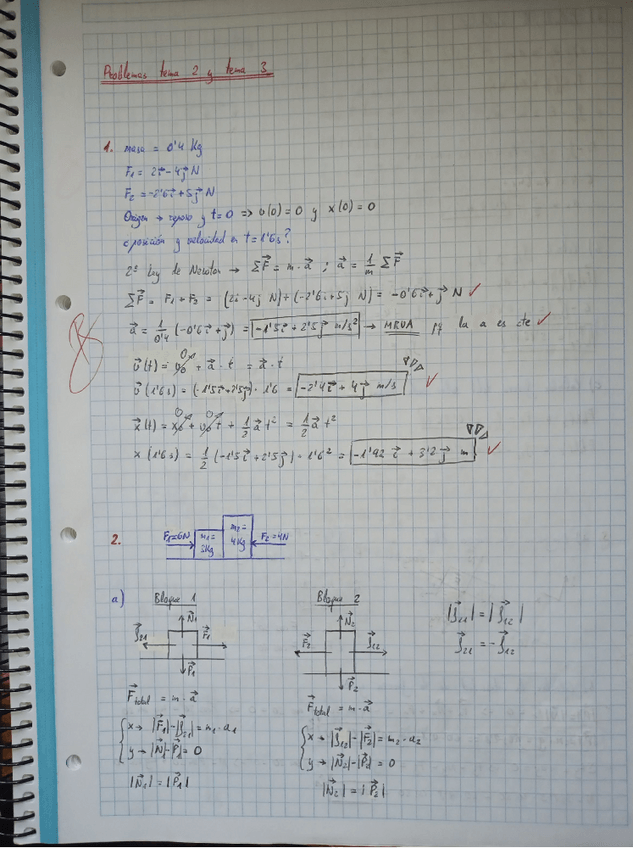 Problemas tema 2 y tema 3
1. masa = 0'4 Kg
F₁ = 2i⃗ - 4j⃗ N
F₂ = -2'6i⃗ + 5j⃗ N
Origen → reposo y t=0 => v(0) = 0 y x(0) = 0
¿posición y velocidad en t = 1'6s?
2ª Ley de Newton → ΣF⃗ = m · a⃗ ; a⃗ = 1/m ΣF⃗
ΣF⃗ = F₁ + F₂ = (2i - 4j N) + (-2'6i + 5j N) = -0'6i⃗ + j⃗ N
a⃗ = 1/0'4 (-0'6i⃗ + j⃗) = -1'5i⃗ + 2'5j⃗ m/s² → MRUA pq la a es cte
v⃗(t) = v₀ + a⃗ · t = a⃗ · t
v⃗(1'6s) = (-1'5i⃗ + 2'5j⃗) · 1'6 = -2'4i⃗ + 4j⃗ m/s
x⃗(t) = x₀ + v₀ t + 1/2 a⃗ t² = 1/2 a⃗ t²
x(1'6s) = 1/2 (-1'5i⃗ + 2'5j⃗) · 1'6² = -1'92 i⃗ + 3'2 j⃗ m
2. F₁=6N m₁= 3Kg m₂= 4Kg F₂=4N
a) Bloque 1 Bloque 2
|f⃗₂₁| = |f⃗₁₂|
f⃗₂₁ = - f⃗₁₂
N⃗₁ f⃗₂₁ F⃗₁ P⃗₁
N⃗₂ F⃗₂ f⃗₁₂ P⃗₂
F⃗total = m · a⃗ F⃗total = m · a⃗
x → |F⃗₁| - |f⃗₂₁| = m₁ · a₁ x → |f⃗₁₂| - |F⃗₂| = m₂ · a₂
y → |N⃗₁| - |P⃗₁| = 0 y → |N⃗₂| - |P⃗₂| = 0
|N⃗₁| = |P⃗₁| |N⃗₂| = |P⃗₂|